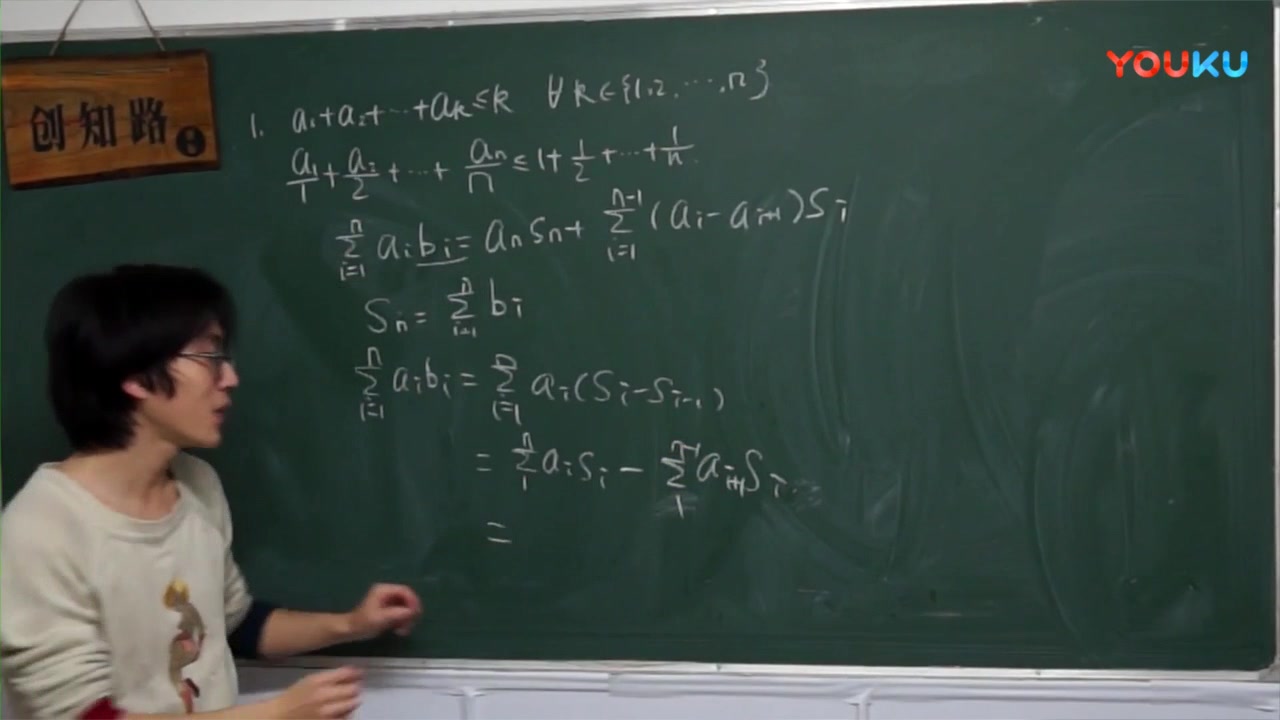 YOUKU
创知路
1. a₁+a₂+⋯+aₖ≤k ∀k∈{1,2,⋯,n}
a₁/1+a₂/2+⋯+aₙ/n≤1+1/2+⋯+1/n
∑_{i=1}^{n} aᵢbᵢ=aₙSₙ+∑_{i=1}^{n-1}(aᵢ-aᵢ₊₁)Sᵢ
Sₙ=∑_{i=1}^{n} bᵢ
∑_{i=1}^{n} aᵢbᵢ=∑_{i=1}^{n} aᵢ(Sᵢ-Sᵢ₋₁)
=∑_{1}^{n} aᵢSᵢ-∑_{1}^{n-1} aᵢ₊₁Sᵢ
=